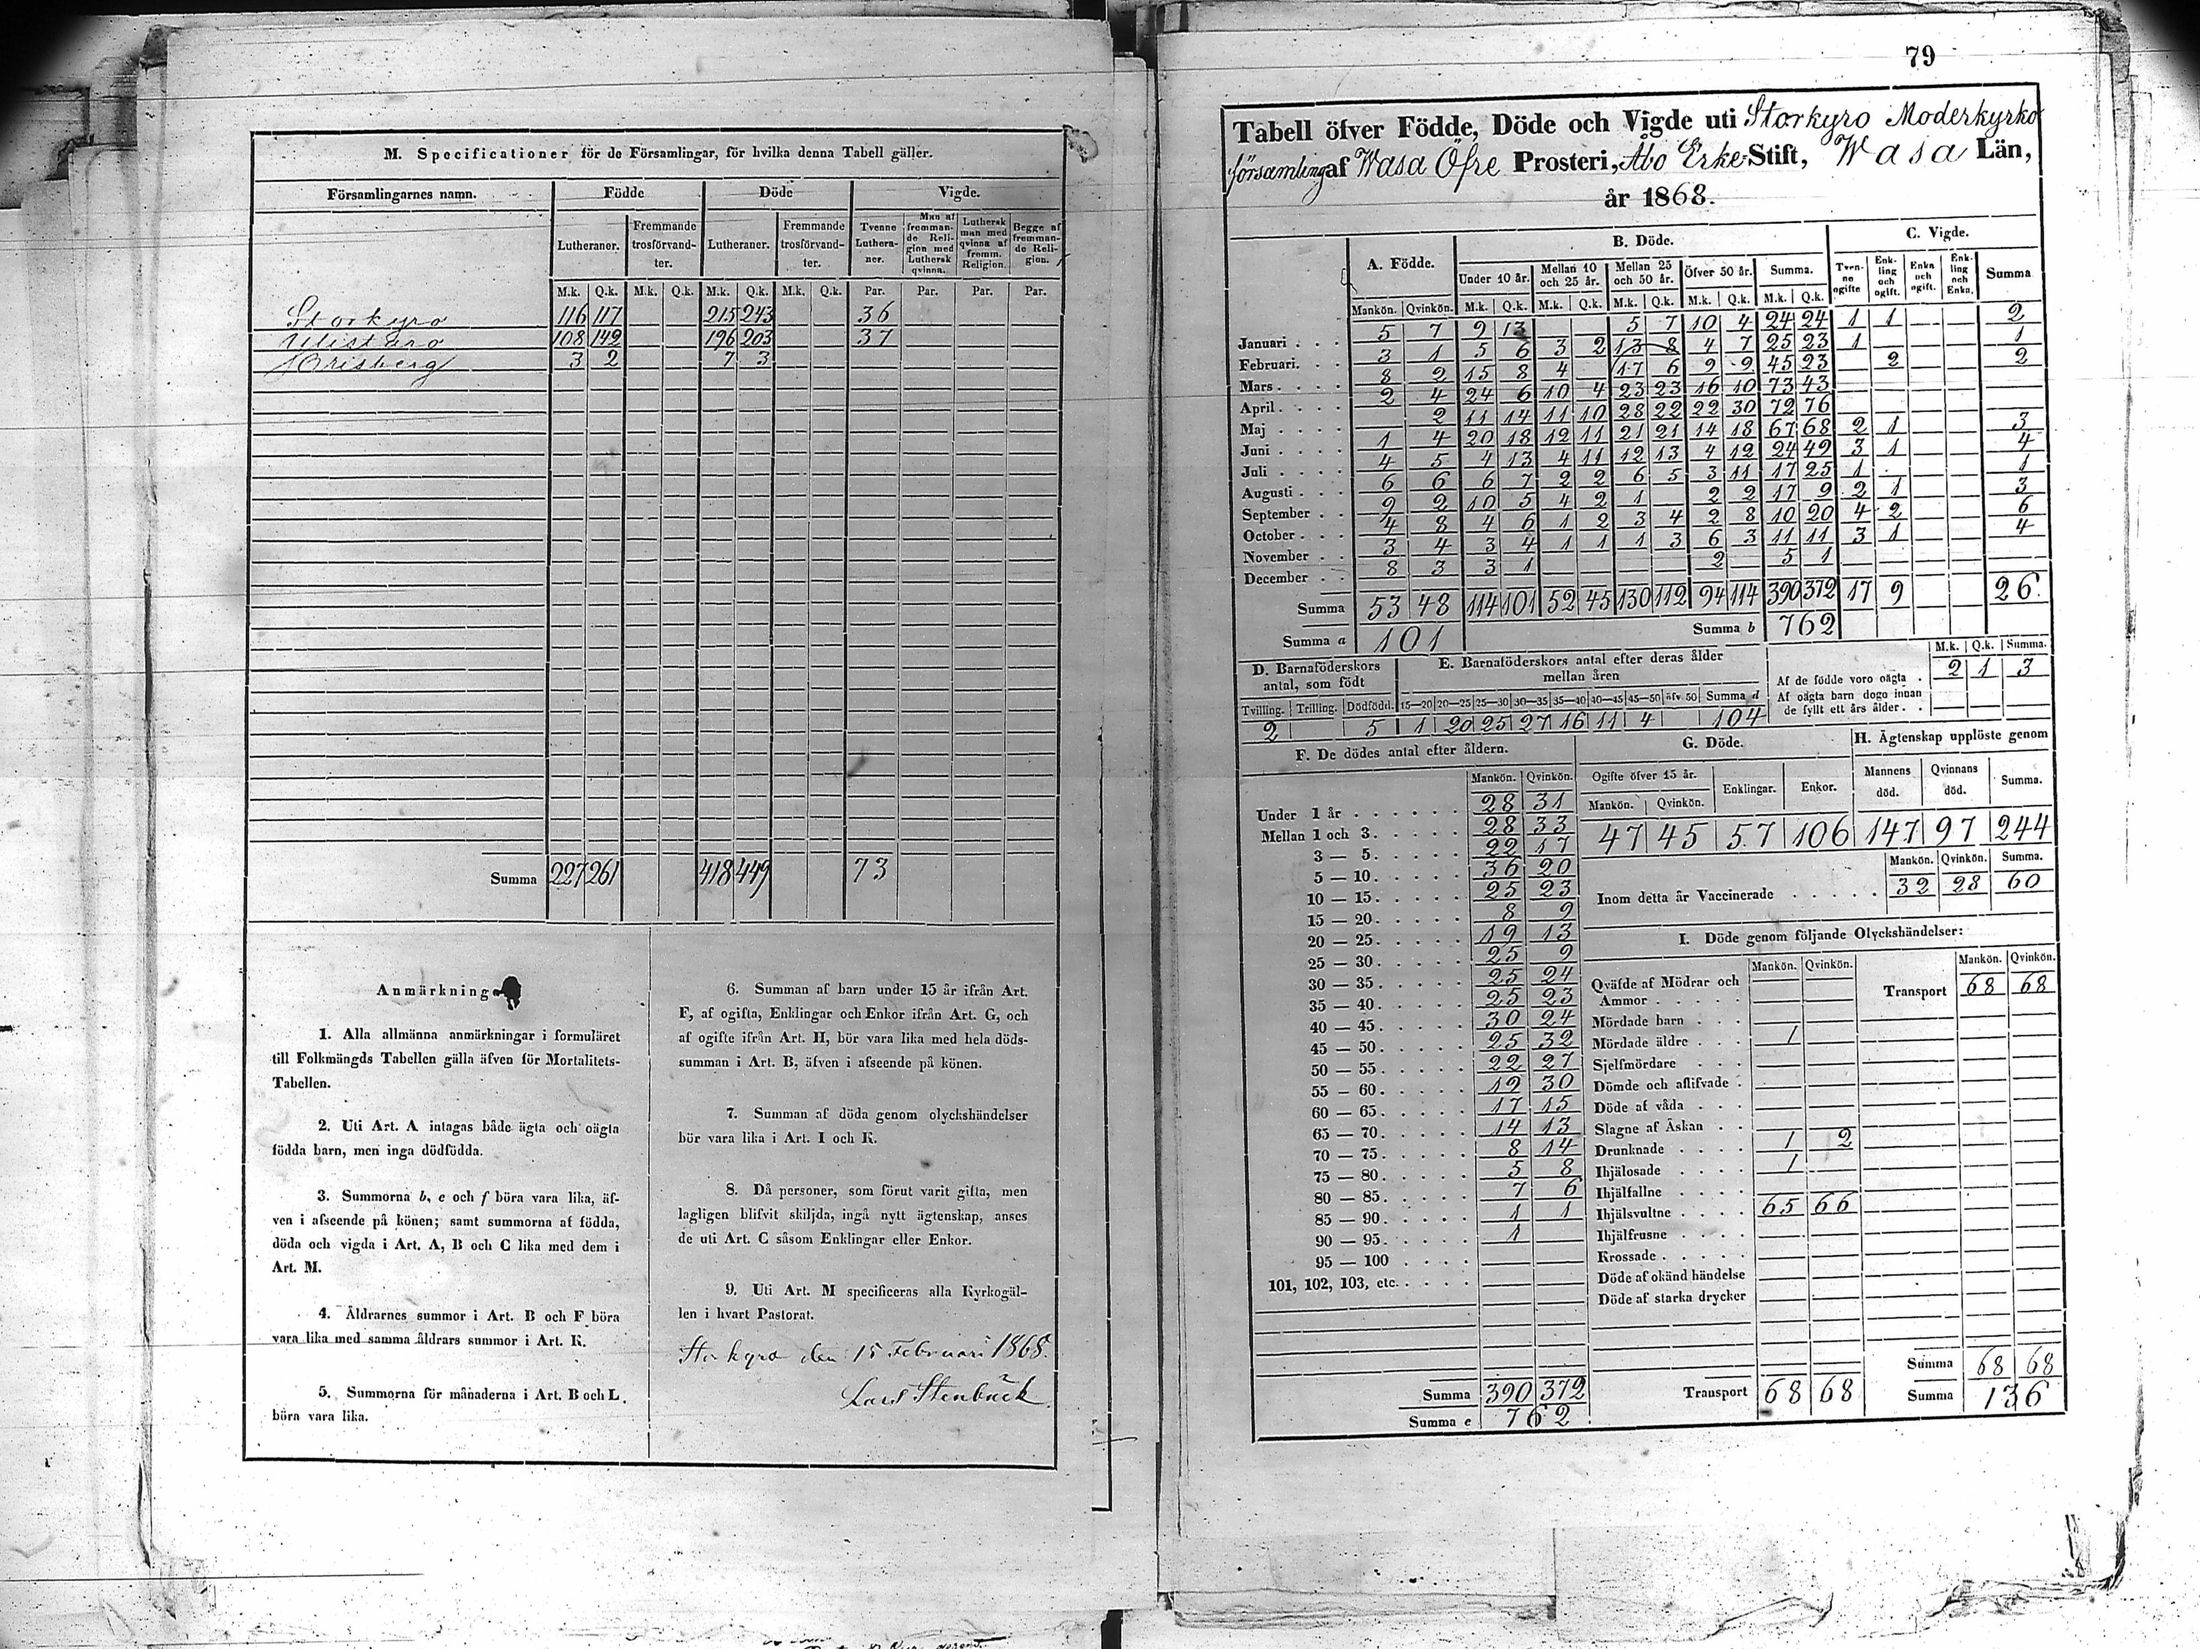 M. Specificationer för de Församlingar, för hvilka denna Tabell gäller.
Församlingarnes namn. Födde Döde Vigde.
Lutheraner. Fremmande trosförvandter. Lutheraner. Fremmande trosförvandter. Tvenne Lutheraner. Man af fremmande Religion med Luthersk qvinna. Luthersk man med qvinna af fremm. Religion. Begge af fremmande Religion.
M.k. Q.k. M.k. Q.k. M.k. Q.k. M.k. Q.k. Par. Par. Par. Par.
Storkyro 116 117 215 243 36
108 142 196 203 37
3 2 7 3
Summa 227 261 418 449 73
Anmärkning
1. Alla allmänna anmärkningar i formuläret
till Folkmängds Tabellen gälla äfven för Mortalitets-
Tabellen.
2. Uti Art. A intagas både ägta och oägta
födda barn, men inga dödfödda.
3. Summorna b, e och f böra vara lika, äf-
ven i afseende på könen; samt summorna af födda,
döda och vigda i Art. A, B och C lika med dem i
Art. M.
4. Åldrarnes summor i Art. B och F böra
vara lika med samma åldrars summor i Art. K.
5. Summorna för månaderna i Art. B och L
böra vara lika.
6. Summan af barn under 15 år ifrån Art.
F, af ogifta, Enklingar och Enkor ifrån Art. G, och
af ogifte ifrån Art. H, bör vara lika med hela döds-
summan i Art. B, äfven i afseende på könen.
7. Summan af döda genom olyckshändelser
bör vara lika i Art. I och K.
8. Då personer, som förut varit gifta, men
lagligen blifvit skiljda, ingå nytt ägtenskap, anses
de uti Art. C såsom Enklingar eller Enkor.
9. Uti Art. M specificeras alla Kyrkogäl-
len i hvart Pastorat.
Storkyro den 15 Februari 1868.
Lars Stenbäck
79
Tabell öfver Födde, Döde och Vigde uti Storkyro Moderkyrko
församling af Wasa Öfre Prosteri, Åbo Erke-Stift, Wasa Län,
år 1868.
A. Födde. B. Döde. C. Vigde.
Under 10 år. Mellan 10 och 25 år. Mellan 25 och 50 år. Öfver 50 år. Summa. Tvenne ogifte Enkling och ogift. Enka och ogift. Enkling och Enka. Summa
Mankön. Qvinkön. M.k. Q.k. M.k. Q.k. M.k. Q.k. M.k. Q.k. M.k. Q.k.
Januari . . . 5 7 9 13 5 7 10 4 24 24 1 1 2
Februari. . . 3 1 5 6 3 2 13 8 4 7 25 23 1 1
Mars . . . . 8 2 15 8 4 17 6 9 9 45 23 2 2
April . . . . 2 4 24 6 10 4 23 23 16 10 73 43
Maj . . . . 2 11 14 11 10 28 22 22 30 72 76
Juni . . . . 1 4 20 18 12 11 21 21 14 18 67 68 2 1 3
Juli . . . . 4 5 4 13 4 11 12 13 4 12 24 49 3 1 4
Augusti . . . 6 6 6 7 2 2 6 5 3 11 17 25 1 1
September . . 9 2 10 5 4 2 1 2 2 17 9 2 1 3
October . . . 4 8 4 6 1 2 3 4 2 8 10 20 4 2 6
November . . 3 4 3 4 1 1 1 3 6 3 11 11 3 1 4
December . . 8 3 3 1 2 5 1
Summa 53 48 114 101 52 45 130 112 94 114 390 372 17 9 26.
Summa a 101 Summa b 762
D. Barnaföderskors antal, som födt E. Barnaföderskors antal efter deras ålder mellan åren M.k. Q.k. Summa.
Af de födde voro oägta . 2 1 3
Af oägta barn dogo innan de fyllt ett års ålder . .
Tvilling. Trilling. Dödfödd. 15—20 20—25 25—30 30—35 35—40 40—45 45—50 öfv. 50 Summa d
2 5 1 20 25 27 16 11 4 104
F. De dödes antal efter åldern.
Mankön. Qvinkön.
Under 1 år . . . . . . 28 31
Mellan 1 och 3 . . . . . 28 33
3 — 5 . . . . . 22 17
5 — 10 . . . . . 36 20
10 — 15 . . . . . 25 23
15 — 20 . . . . . 8 9
20 — 25 . . . . . 19 13
25 — 30 . . . . . 25 9
30 — 35 . . . . . 25 24
35 — 40 . . . . . 25 23
40 — 45 . . . . . 30 24
45 — 50 . . . . . 25 32
50 — 55 . . . . . 22 27
55 — 60 . . . . . 19 30
60 — 65 . . . . . 17 15
65 — 70 . . . . . 14 13
70 — 75 . . . . . 8 14
75 — 80 . . . . . 5 8
80 — 85 . . . . . 7 6
85 — 90 . . . . . 1 1
90 — 95 . . . . . 1
95 — 100 . . . .
101, 102, 103, etc. . . . .
Summa 390 372
Summa e 762
G. Döde. H. Ägtenskap upplöste genom
Ogifte öfver 15 år. Enklingar. Enkor. Mannens död. Qvinnans död. Summa.
Mankön. Qvinkön.
47 45 57 106 147 97 244
Mankön. Qvinkön. Summa.
Inom detta år Vaccinerade . . . . . 32 28 60
I. Döde genom följande Olyckshändelser:
Mankön. Qvinkön. Mankön. Qvinkön.
Qväfde af Mödrar och Ammor . . . . . Transport 68 68
Mördade barn . . .
Mördade äldre . . . 1
Sjelfmördare . . .
Dömde och aflifvade .
Döde af våda . . .
Slagne af Åskan . .
Drunknade . . . . 1 2
Ihjälosade . . . . 1
Ihjälfallne . . . .
Ihjälsvultne . . . . 65 66
Ihjälfrusne . . . .
Krossade . . . . .
Döde af okänd händelse
Döde af starka drycker
Summa 68 68
Transport 68 68 Summa 136